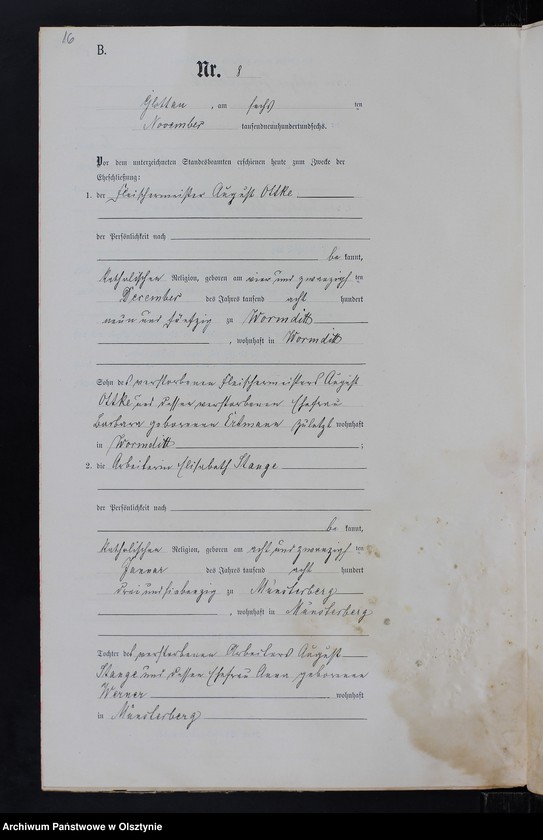 16
B.
Nr. 8
Glottau, am sechs ten
November tausendneunhundertundsechs.
Vor dem unterzeichneten Standesbeamten erschienen heute zum Zwecke der
Eheschließung:
1. der Fleischermeister August Ottke
der Persönlichkeit nach
be kannt,
katholischer Religion, geboren am vier und zwanzigsten
Dezember des Jahres tausend acht hundert
neun und fünfzig zu Wormditt
, wohnhaft in Wormditt
Sohn des verstorbenen Fleischermeisters August
Ottke und dessen verstorbenen Ehefrau
Barbara geborenen Ertmann zuletzt wohnhaft
in Wormditt ;
2. die Arbeiterin Elisabeth Stange
der Persönlichkeit nach
be kannt,
katholischer Religion, geboren am acht und zwanzigsten
Januar des Jahres tausend acht hundert
drei und siebenzig zu Münsterberg
, wohnhaft in Münsterberg
Tochter des verstorbenen Arbeiters August
Stange und dessen Ehefrau Anna geborenen
Werner wohnhaft
in Münsterberg
Archiwum Państwowe w Olsztynie